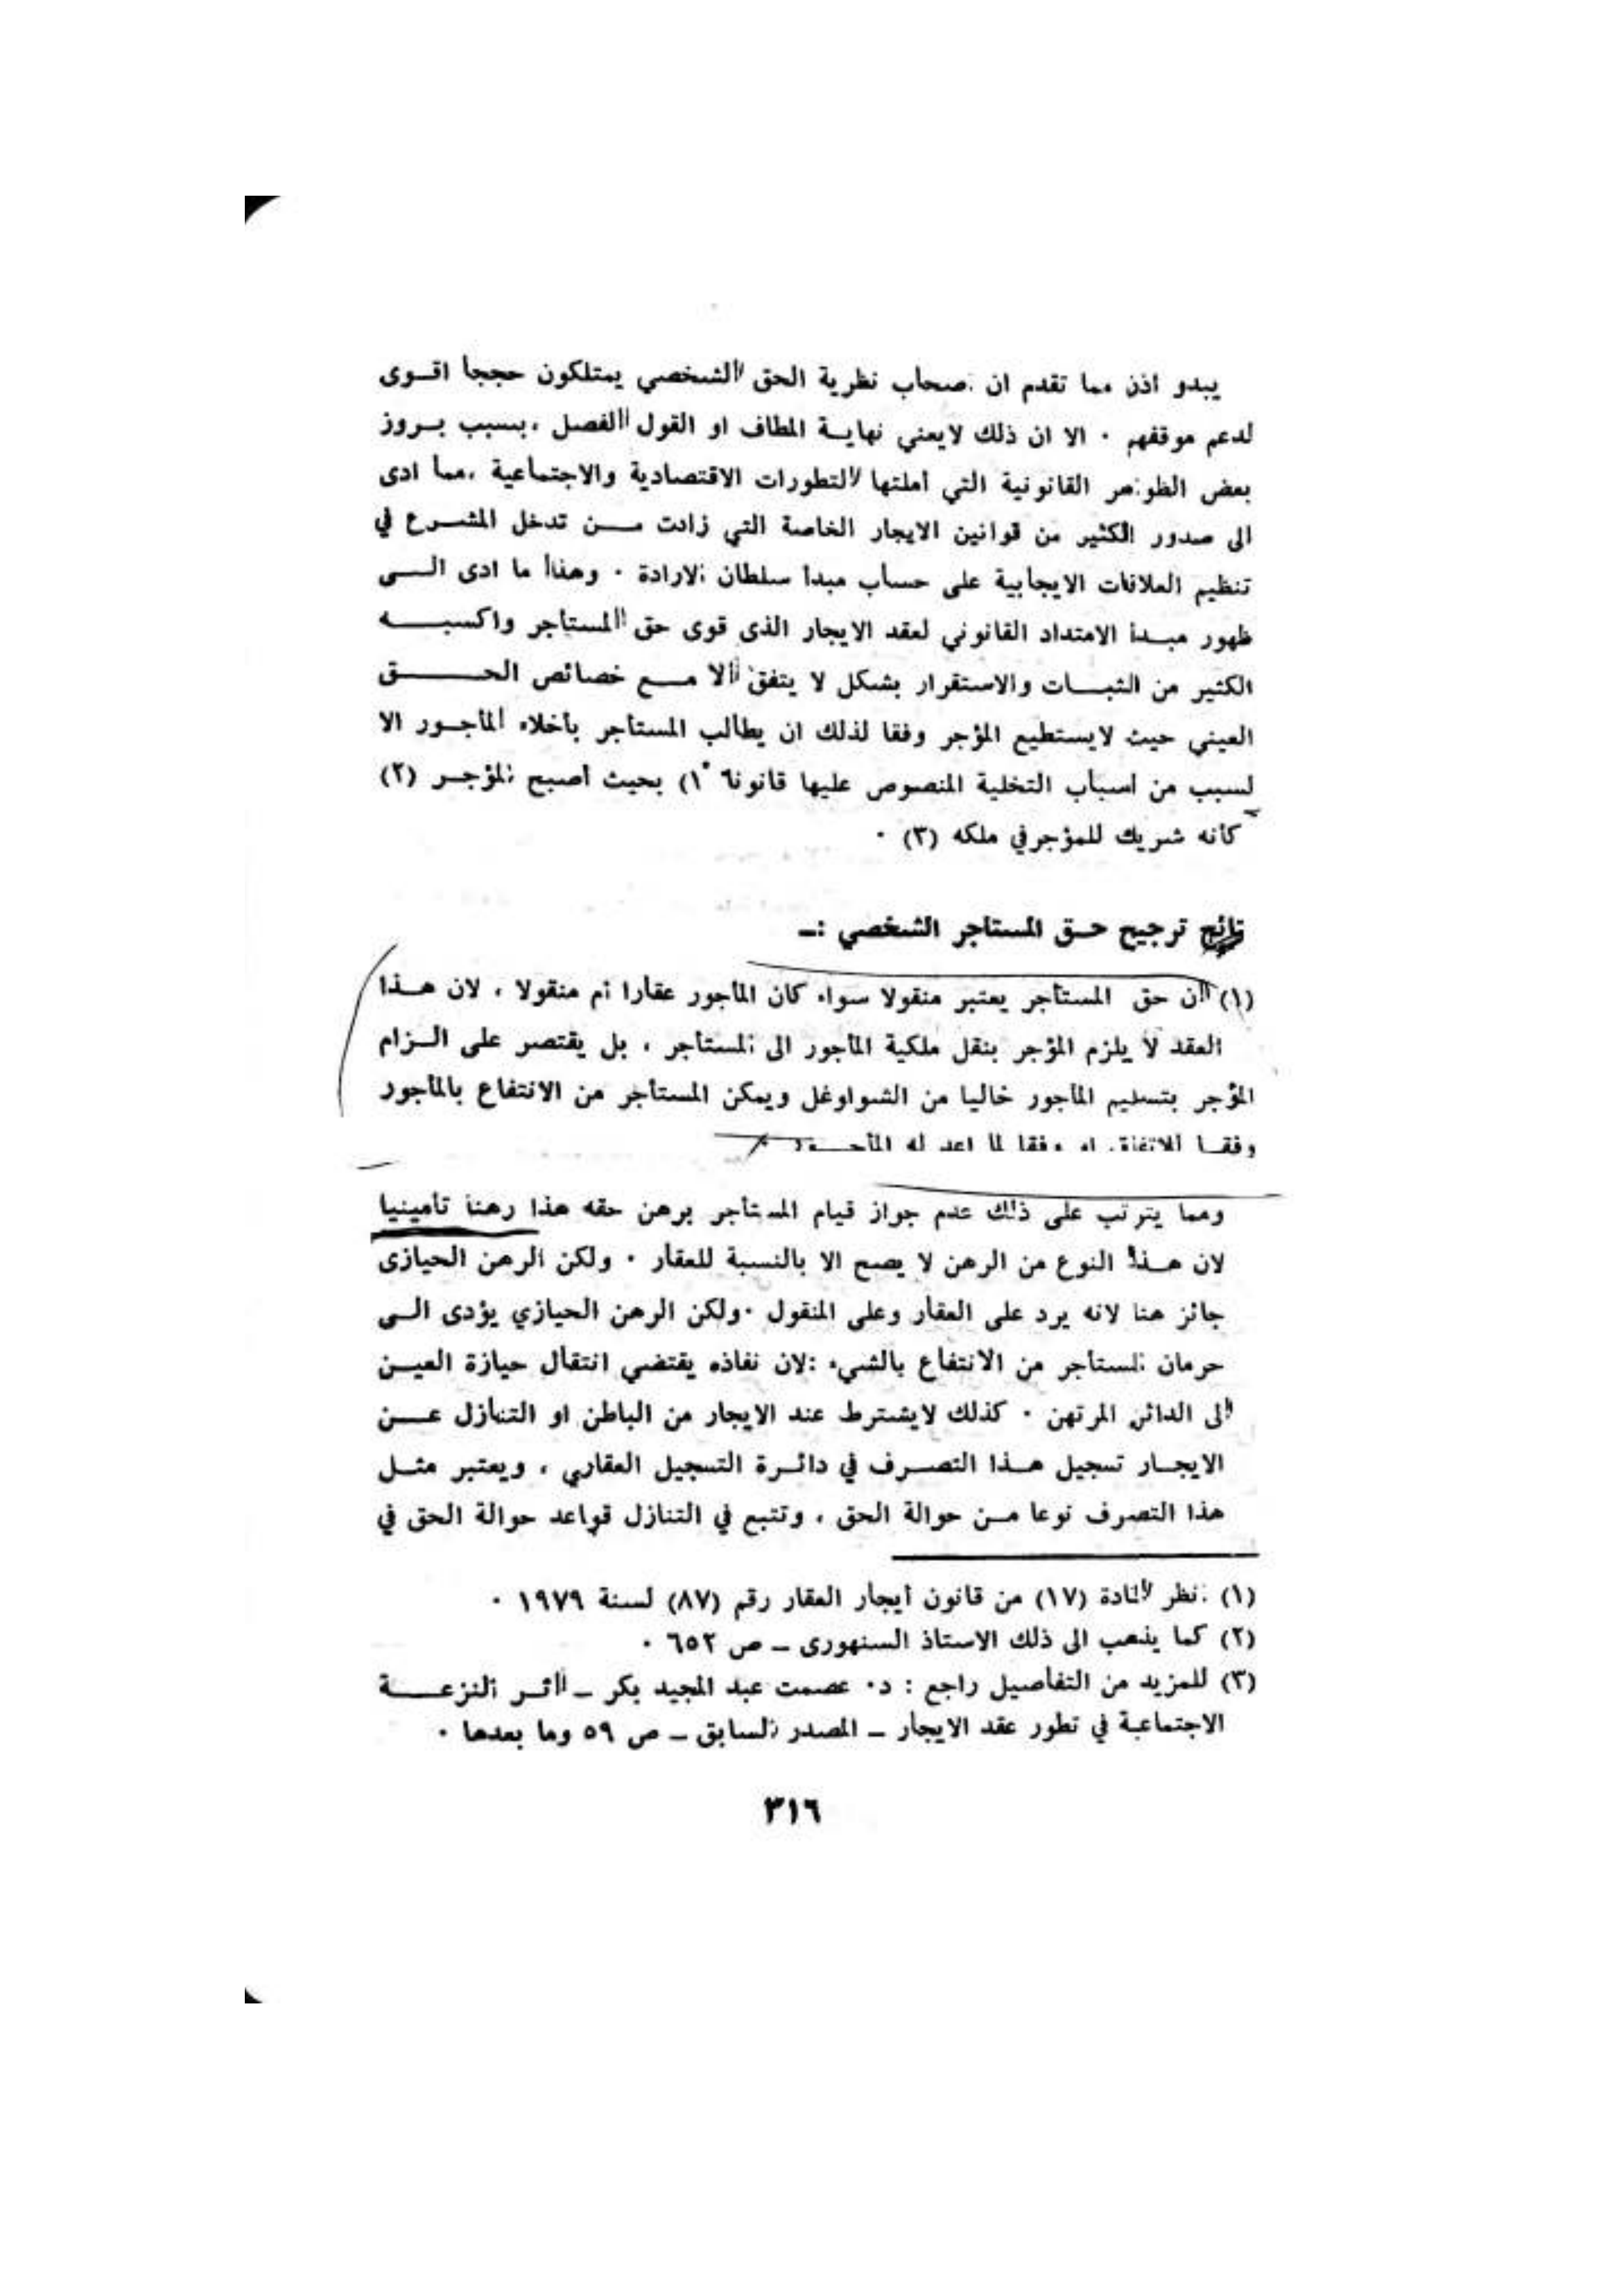 يبدو اذن مما تقدم ان اصحاب نظرية الحق الشخصي يمتلكون حججا اقـوى
لدعم موقفهم ٠ الا ان ذلك لايعني نهايـة المطاف او القول الفصل ،بسبب بـروز
بعض الظواهر القانونية التي أملتها التطورات الاقتصادية والاجتماعية ،مما ادى
الى صدور الكثير من قوانين الايجار الخاصة التي زادت مـــن تدخل المشـرع في
تنظيم العلاقات الايجابية على حساب مبدا سلطان الارادة ٠ وهذا ما ادى الـــى
ظهور مبـدأ الامتداد القانوني لعقد الايجار الذى قوى حق المستاجر واكسبـــه
الكثير من الثبـــات والاستقرار بشكل لا يتفق الا مـــع خصائص الحـــــق
العيني حيث لايستطيع المؤجر وفقا لذلك ان يطالب المستأجر بأخلاء المأجـور الا
لسبب من اسباب التخلية المنصوص عليها قانونا (١) بحيث أصبح المؤجـر (٢)
كأنه شريك للمؤجرفي ملكه (٣) ٠
نتائج ترجيح حـق المستاجر الشخصي :ـ
(١) ان حق المستأجر يعتبر منقولا سواء كان المأجور عقارا أم منقولا ، لان هـذا
العقد لا يلزم المؤجر بنقل ملكية المأجور الى المستأجر ، بل يقتصر على الـزام
المؤجر بتسليم المأجور خاليا من الشواوغل ويمكن المستأجر من الانتفاع بالمأجور
وفقـا للاتفاق او وفقا لما اعد له المأجـــور ٠
ومما يترتب على ذلك عدم جواز قيام المستأجر برهن حقه هذا رهنا تأمينيا
لان هـذا النوع من الرهن لا يصح الا بالنسبة للعقار ٠ ولكن الرهن الحيازى
جائز هنا لانه يرد على العقار وعلى المنقول ٠ولكن الرهن الحيازي يؤدى الـى
حرمان المستأجر من الانتفاع بالشيء :لان نفاذه يقتضي انتقال حيازة العيـن
الى الدائن المرتهن ٠ كذلك لايشترط عند الايجار من الباطن او التنازل عـــن
الايجـار تسجيل هـذا التصـرف في دائـرة التسجيل العقاري ، ويعتبر مثـل
هذا التصرف نوعا مـن حوالة الحق ، وتتبع في التنازل قواعد حوالة الحق في
(١) انظر المادة (١٧) من قانون أيجار العقار رقم (٨٧) لسنة ١٩٧٩ ٠
(٢) كما يذهب الى ذلك الاستاذ السنهورى ـ ص ٦٥٢ ٠
(٣) للمزيد من التفاصيل راجع : د٠ عصمت عبد المجيد بكر ـ اثـر النزعـــة
الاجتماعية في تطور عقد الايجار ـ المصدر السابق ـ ص ٥٩ وما بعدها ٠
٣١٦